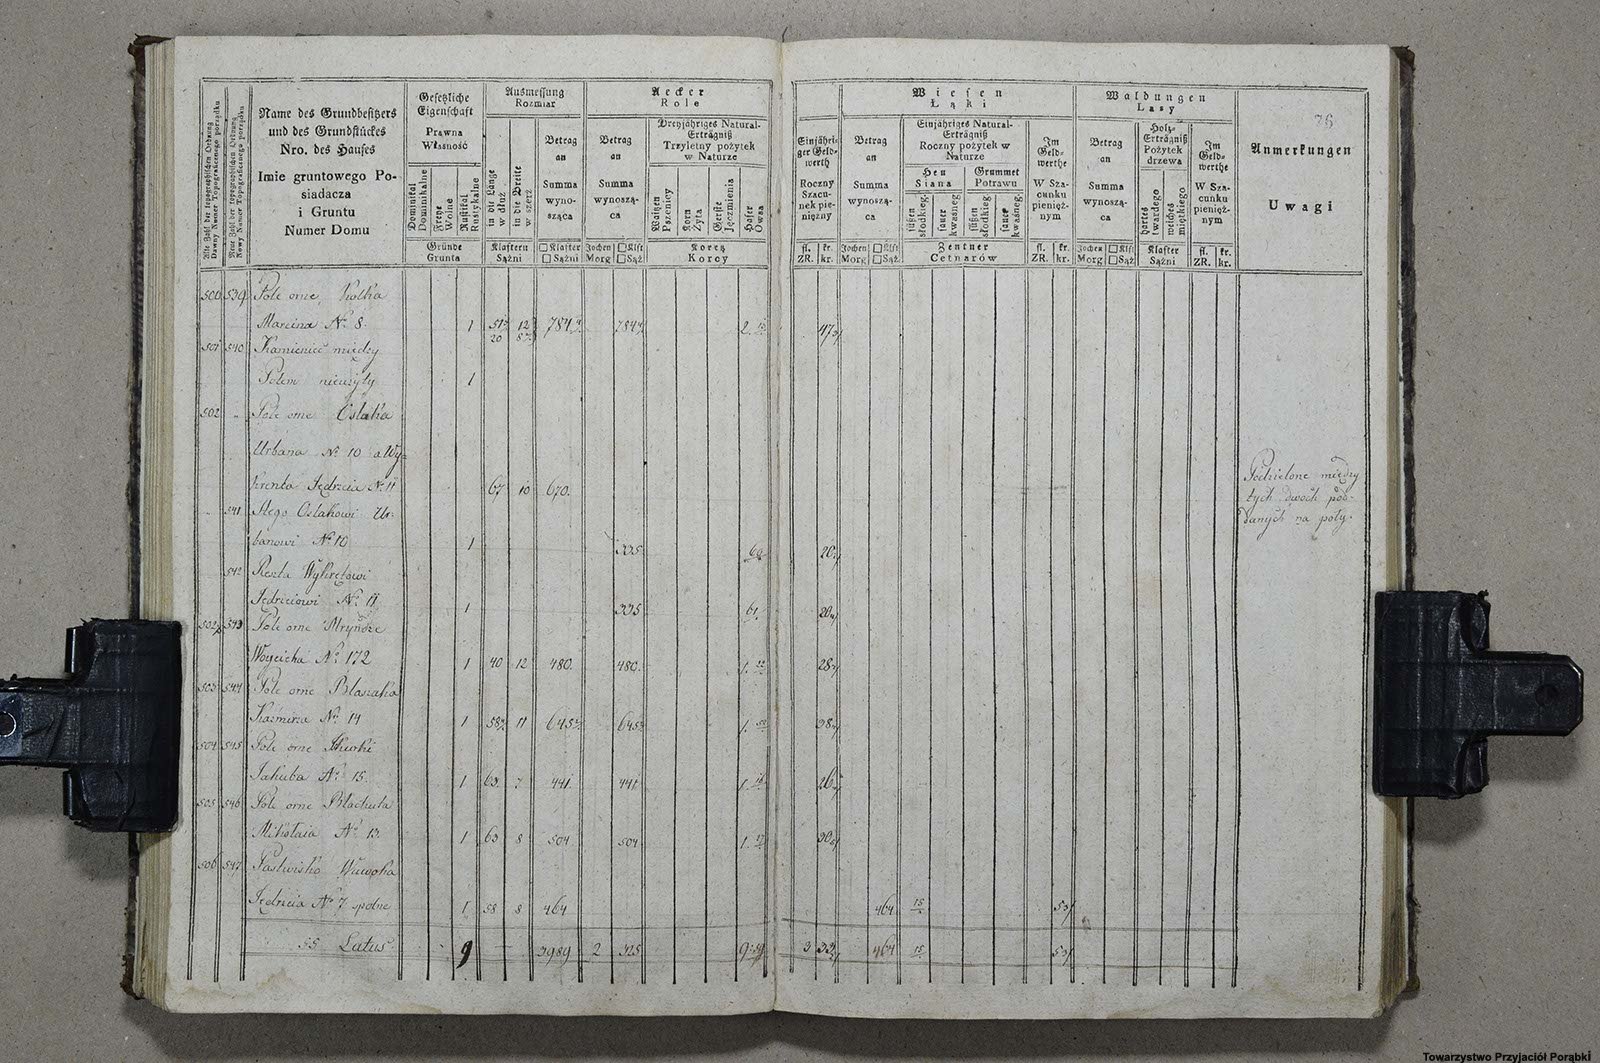 Alte Zahl der topographischen Ordnung
Dawny Numer Topograficznego porządku
Neue Zahl der topographischen Ordnung
Nowy Numer Topograficznego porządku
Name des Grundbesitzers
und des Grundstückes
Nro. des Hauses
Imie gruntowego Po-
siadacza
i Gruntu
Numer Domu
Gesetzliche
Eigenschaft
Prawna
Własność
Dominikal
Dominikalne
Freye
Wolne
Rustikal
Rustykalne
Gründe
Grunta
Ausmessung
Rozmiar
in die Länge
w dłuż
in die Breite
w szerz
Klaftern
Sążni
Betrag
an
Summa
wyno-
sząca
□ Klafter
□ Sążni
Aecker
Role
Betrag
an
Summa
wynoszą-
ca
Jochen □ Klft
Morg □ Sąż
Dreyjähriges Natural-
Erträgniß
Trzyletny pożytek
w Naturze
Waitzen
Pszenicy
Korn
Zyta
Gerste
Jęczmienia
Hafer
Owsa
Koretz
Korcy
Einjähri-
ger Geld-
werth
Roczny
Szacu-
nek pie-
niężny
fl. kr.
ZR. kr.
Wiesen
Łąki
Betrag
an
Summa
wynoszą-
ca
Jochen □ Klft
Morg □ Sąż
Einjähriges Natural-
Erträgniß
Roczny pożytek w
Naturze
Heu
Siana
Grummet
Potrawu
süßen
słodkieg.
sauer
kwaśneg.
süßen
słodkieg
sauer
kwaśneg.
Zentner
Cetnarów
Im
Geld-
werthe
W Sza-
cunku
pienięż-
nym
fl. kr.
ZR. kr.
Waldungen
Lasy
Betrag
an
Summa
wynoszą-
ca
Jochen □ Klft
Morg □ Sąż
Holz-
Erträgniß
Pożytek
drzewa
hartes
twardego
weiches
miętkiego
Klafter
Sążni
Im
Geld-
werthe
W Sza-
cunku
pienięż-
nym
fl. kr.
ZR. kr.
76
Anmerkungen
Uwagi
500 539 Pole orne Kolka
Marcina No 8. 1 12 784 784 2. 47
20
501 540 Kamieniec między
Polem nieużyty 1
502 " Pole orne Oslaka
Urbana No 10 a Wy=
krenta Jędrzeia No 11 67 10 670.
Podzielone między
tych dwoch pod-
danych na poły.
" 541 Oslakowi Ur-
banowi No 10 1 335 20
542 Reszta Wykrętowi
Jędrzeiowi No 11 1 335 61 20
502 543 Pole orne
Woycicha No 172 1 40 12 480. 480. 1. 28
503 544 Pole orne Blazaka
Kaźmirza No 14 1 58 11 645 645 1. 38
504 545 Pole orne
Jakuba No 15. 1 63. 7 441. 441 1. 26
505 546 Pole orne Blachuta
Mikołaia No 13. 1 63 8 504 504 1. 30
506 547 Pastwisko Wawoka
Jędrzeia No 7 spolne 1 58 8 464 464 15 53
55 Latus 9 — 3989 2 325 9 3 33 464 15 53
Towarzystwo Przyjaciół Porąbki